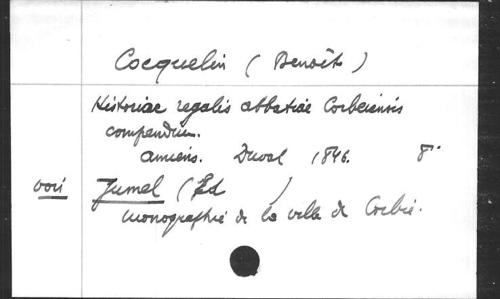 Cocquelin (Benoît)
Historiae regalis abbatiae Corbeiensis
compendium.
Amiens. Duval 1846. 8°
voir Jumel (Ed )
monographie de la ville de Corbie.